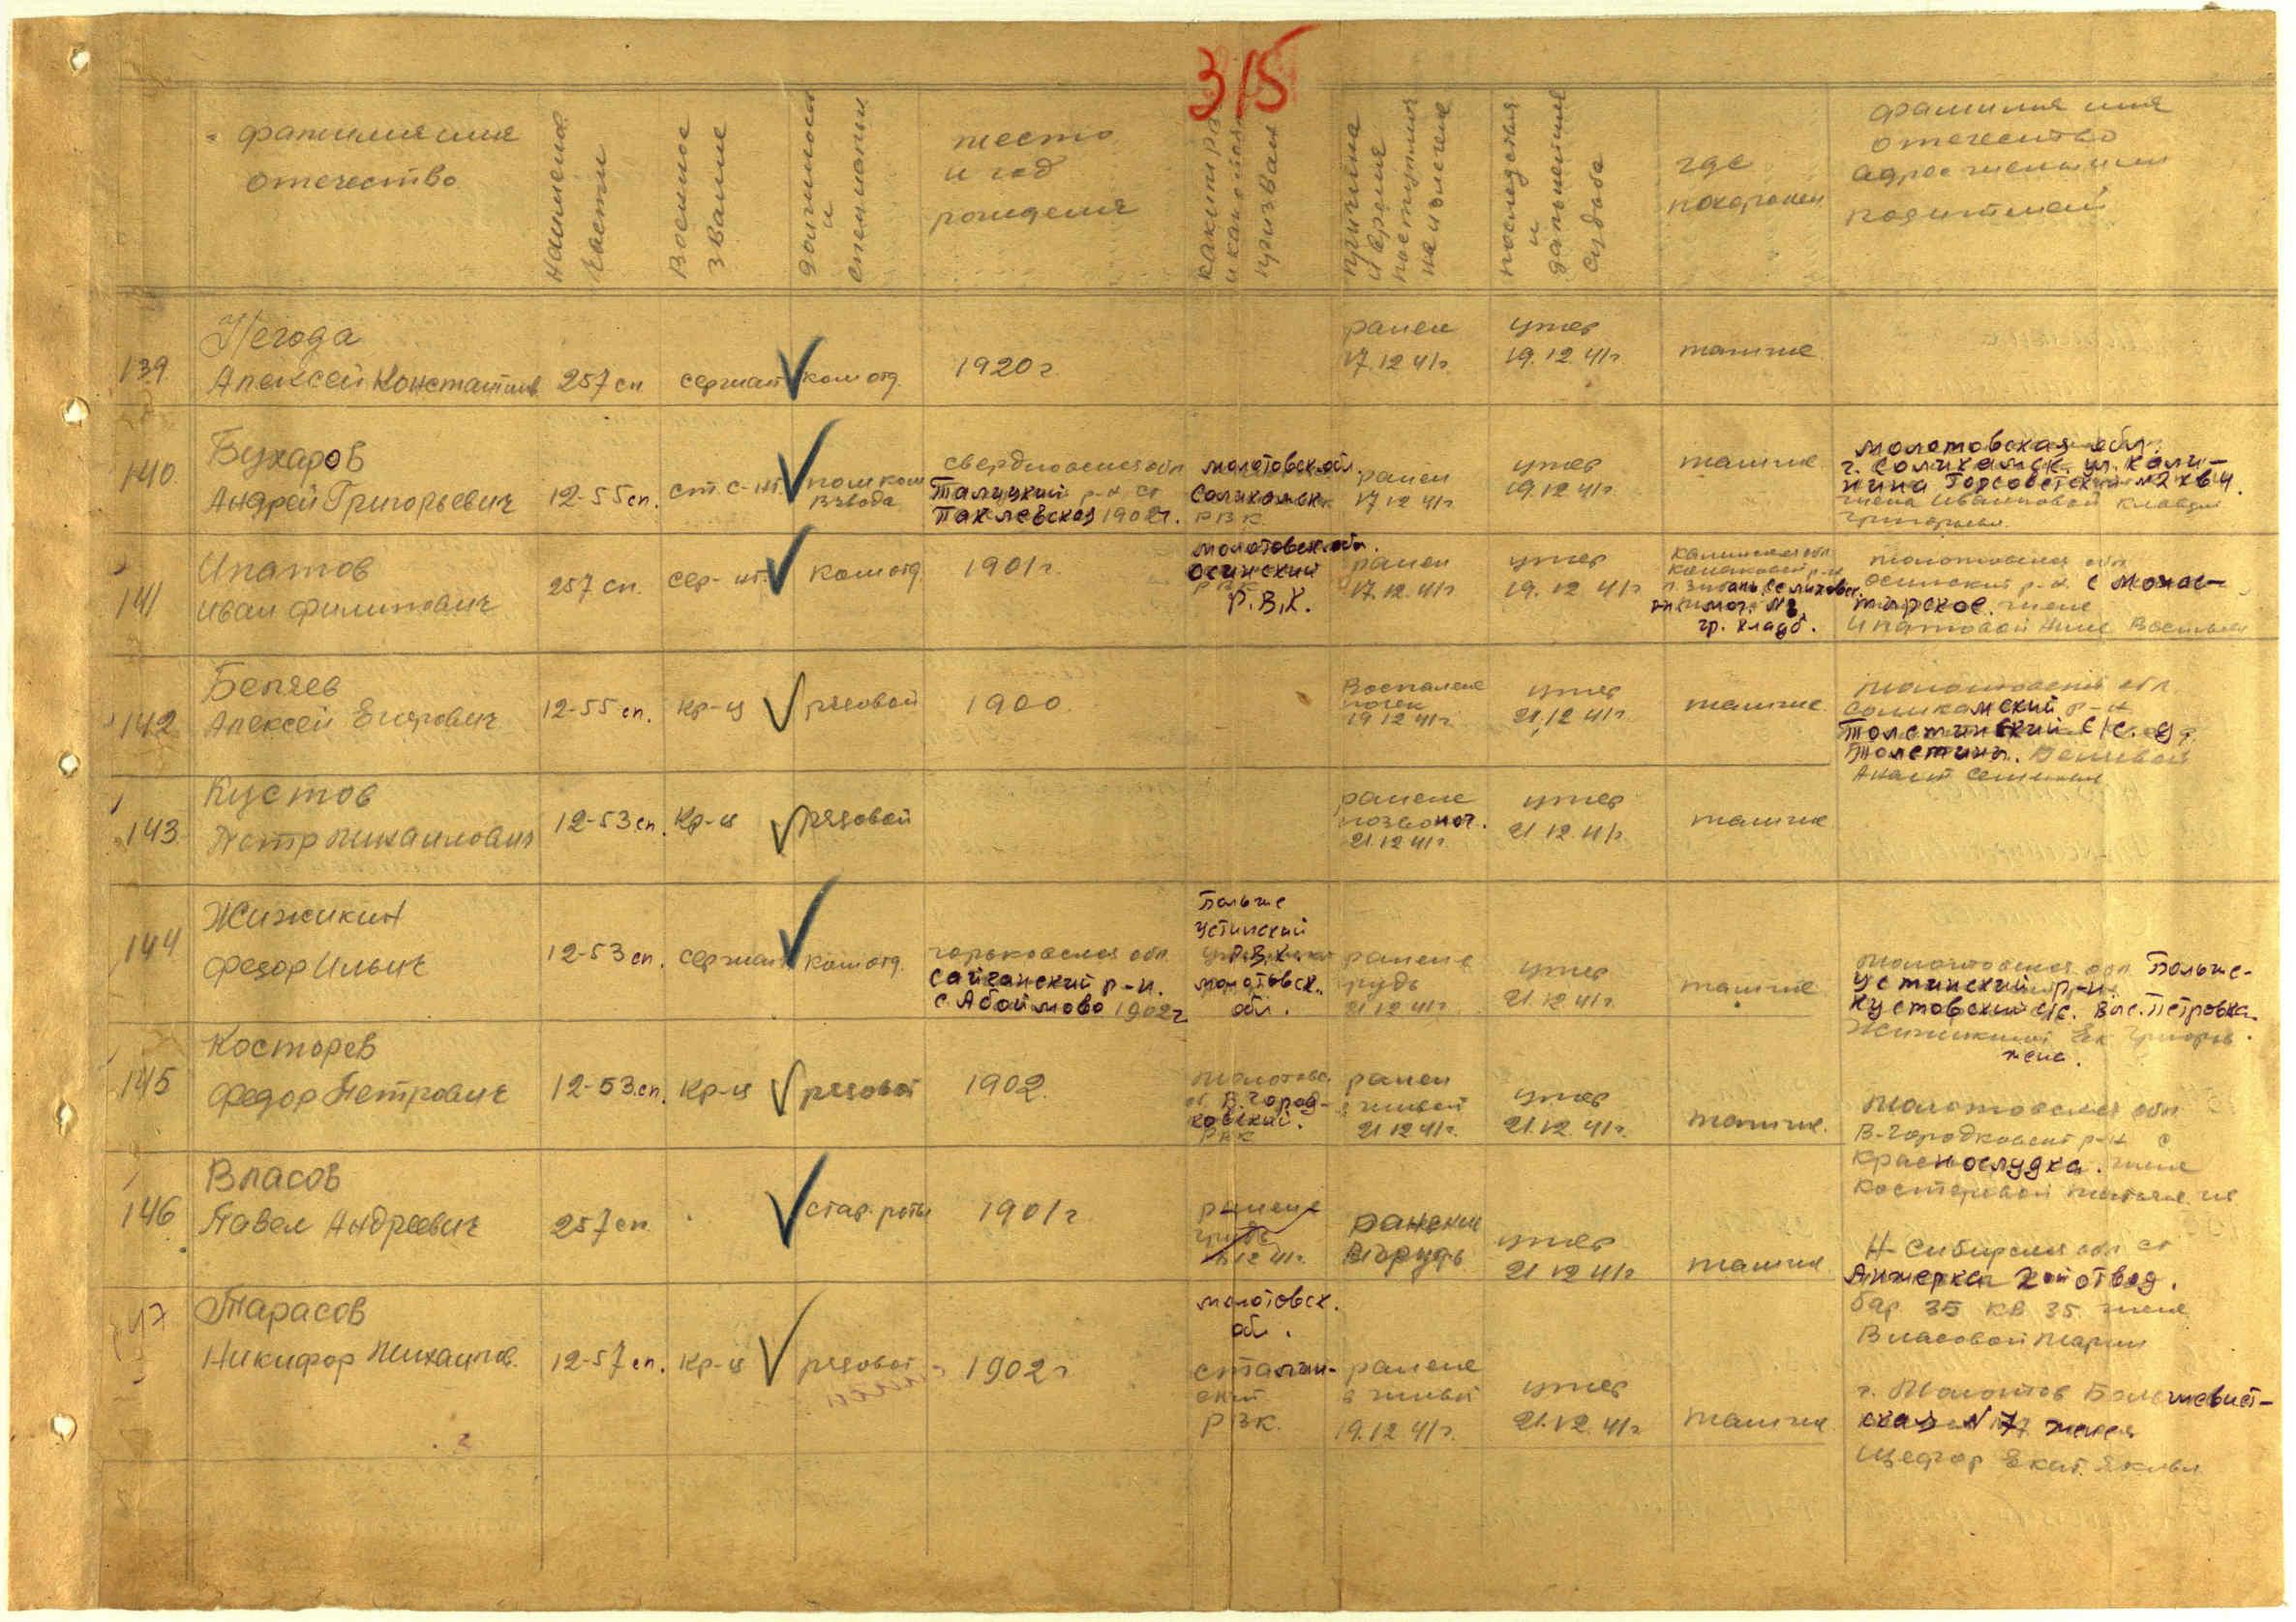 315
фамилия имя
отчество
Наименов
части
Военное
звание
должность
и
специальн
место
и год
рождения
каким РВК
и какой обл
призван
причина
и время
поступлен
на излечен
последствия
и
дальнейшая
судьба
где
похоронен
фамилия имя
отчество
адрес жены или
родителей
139
Негода
Алексей Констатинов
257 сп
сержант
ком отд.
1920 г
ранен
17.12.41г
умер
19.12.41г.
там же
140.
Бухаров
Андрей Григорьевич
12-55 сп.
ст. с-нт.
пом ком
взвода
Свердловская обл
Талицкий р-н ст
Паклевская 1902г.
Молотовск. обл.
Соликамск
РВК
ранен
17 12 41г
умер
19.12 41г
там же
Молотовская обл.
г. Соликамск. ул. Кали-
нина Горсоветский №2 кв 4.
жена Ивановой Клавдии
Григорьевн.
141
Ипатов
Иван Филиппович
257 сп.
сер-нт.
ком отд
1901г.
Молотовск. обл.
Осинский
Р.В.К.
ранен
17.12.41г
умер
19.12 41г
Калининская обл
р-н
мог. №3
гр. кладб.
Молотовская обл
Осинский р-н. с Монас-
тырское. жене
Ипатовой Нине Васильев
142
Беляев
Алексей Егорович
12-55 сп.
кр-ц
рядовой
1900.
Воспаление
почек
19 12 41г.
умер
21.12 41г
там же.
Молотовский обл.
Соликамский р-н
Толстинский С/С. д.
Толстина. Беляевой
143
Кустов
Петр Михаилович
12-53 сп.
кр-ц
рядовой
ранение
позвоноч.
21.12 41г
умер
21.12.41г
там же
144
Жижикин
Федор Ильич
12-53 сп.
сержант
ком отд.
Горьковская обл
Сайганский р-н.
с. Абаимово 1902г
Больше
Устинский
Р.В.К
Молотовск.
обл.
ранен в
грудь
21 12 41г
умер
21.12 41г
там же
Молотовская обл Больше-
Устинский р-н.
Кустовский с/с. Выс. Петровка
Жижикиной Ек Григорь.
жена.
145
Костарев
Федор Петрович
12-53.сп.
кр-ц
рядовой
1902.
Молотовс.
об В.Город-
ковский.
РВК
ранен
в живот
21 12 41г.
умер
21.12.41г.
там же.
Молотовская обл
В-Городковский р-н с
Краснослудка. жене
146
Власов
Павел Андреевич
257 сп
стар. роты
1901г
ранение
грудь
12 41г.
ранение
в грудь
умер
21 12 41г
там же
Н-Сибирская обл ст
Анжерка 2 ой отвод.
бар 35 кв 35 жене
Власовой Марии
47
Тарасов
Никифор Михаилов.
12-57 сп.
кр-ц
рядовой
1902г
Молотовск.
обл.
Сталин-
ский
РВК.
ранение
в живот
19.12 41г.
умер
21.12.41г
там же
г. Молотов Большевист-
ская № 7 жена
Екат.